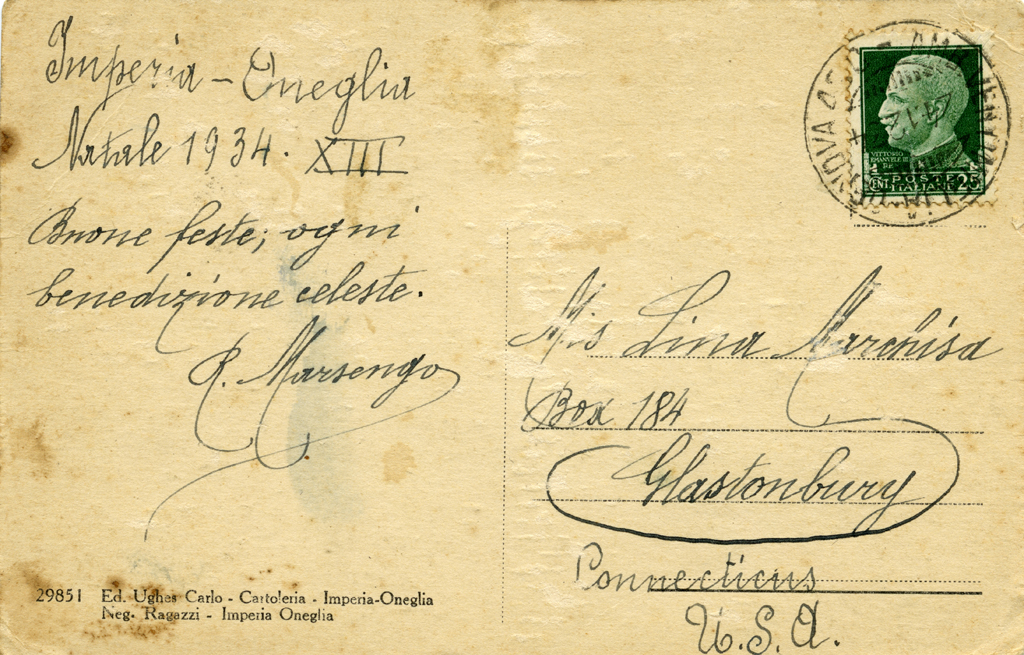 Imperia - Oneglia
Natale 1934. XIII
Buone feste, ogni
benedizione celeste.
R. Marsengo
29851 Ed. Ughes Carlo - Cartoleria - Imperia-Oneglia
Neg. Ragazzi - Imperia Oneglia
VITTORIO
EMANUELE III
RE
POSTE
CENT ITALIANE 25
Mis Lina Marchisa
Box 184
Glastonbury
Connecticus
U.S.A.